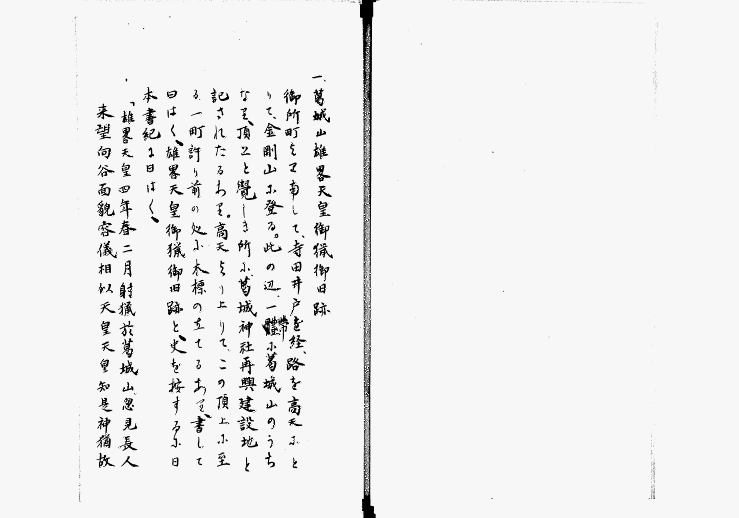 一、葛城山雄畧天皇御猟御旧跡
御所町より南して、寺田井戸を経、路を高天にと
りて、金剛山に登る。此の辺、一體に葛城山のうち
なり、頂上と覺しき所に、葛城神社再興建設地と
記されたるあり。高天より上りて、この頂上に至
る、一町許り前の処に木標の立てるあり、書して
曰はく、雄畧天皇御猟御旧跡と、史を按するに日
本書紀に曰はく、
「雄畧天皇四年春二月射猟於葛城山、忽見長人
来望向谷面貌容儀相似天皇天皇知是神猶故